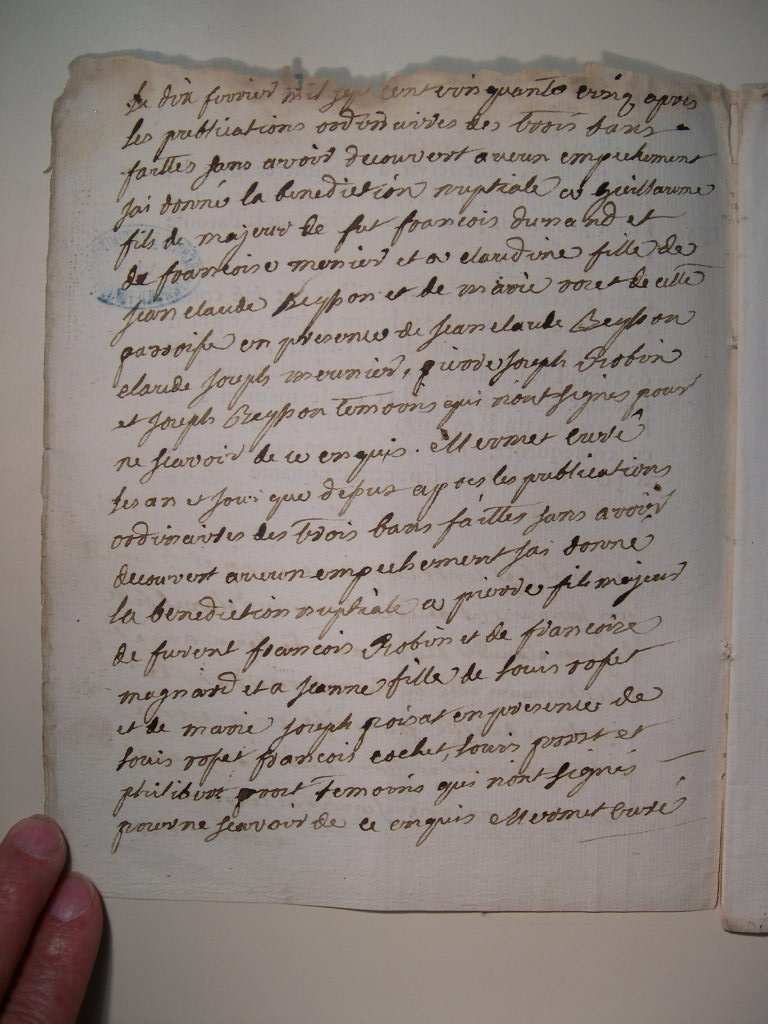 Le dix fevrier mil sept cent cinquante cinq apres
les publications ordinaires des trois bans
faittes sans avoir decouvert aucun empechement
jai donné la benediction nuptiale a guillaume
fils de majeur de fut francois dunand et
de francoise menier et a claudine fille de
jean claude Reysson et de marie voret de cette
parroisse en presence de jean claude Reysson
claude joseph meunier, pierre joseph Robin
et joseph Reysson temoins qui nont signes pour
ne scavoir de ce enquis. Mermet curé
les an et jour que depus apres les publications
ordinaires des trois bans faittes sans avoir
decouvert aucun empechement jai donné
la benediction nuptiale a pierre fils majeur
de furent francois Robin et de francoise
magnard et a jeanne fille de louis rosset
et de marie joseph poisat en presence de
louis rosset francois cochet, louis prost et
philibert prost temoins qui nont signés
pour ne scavoir de ce enquis Mermet curé